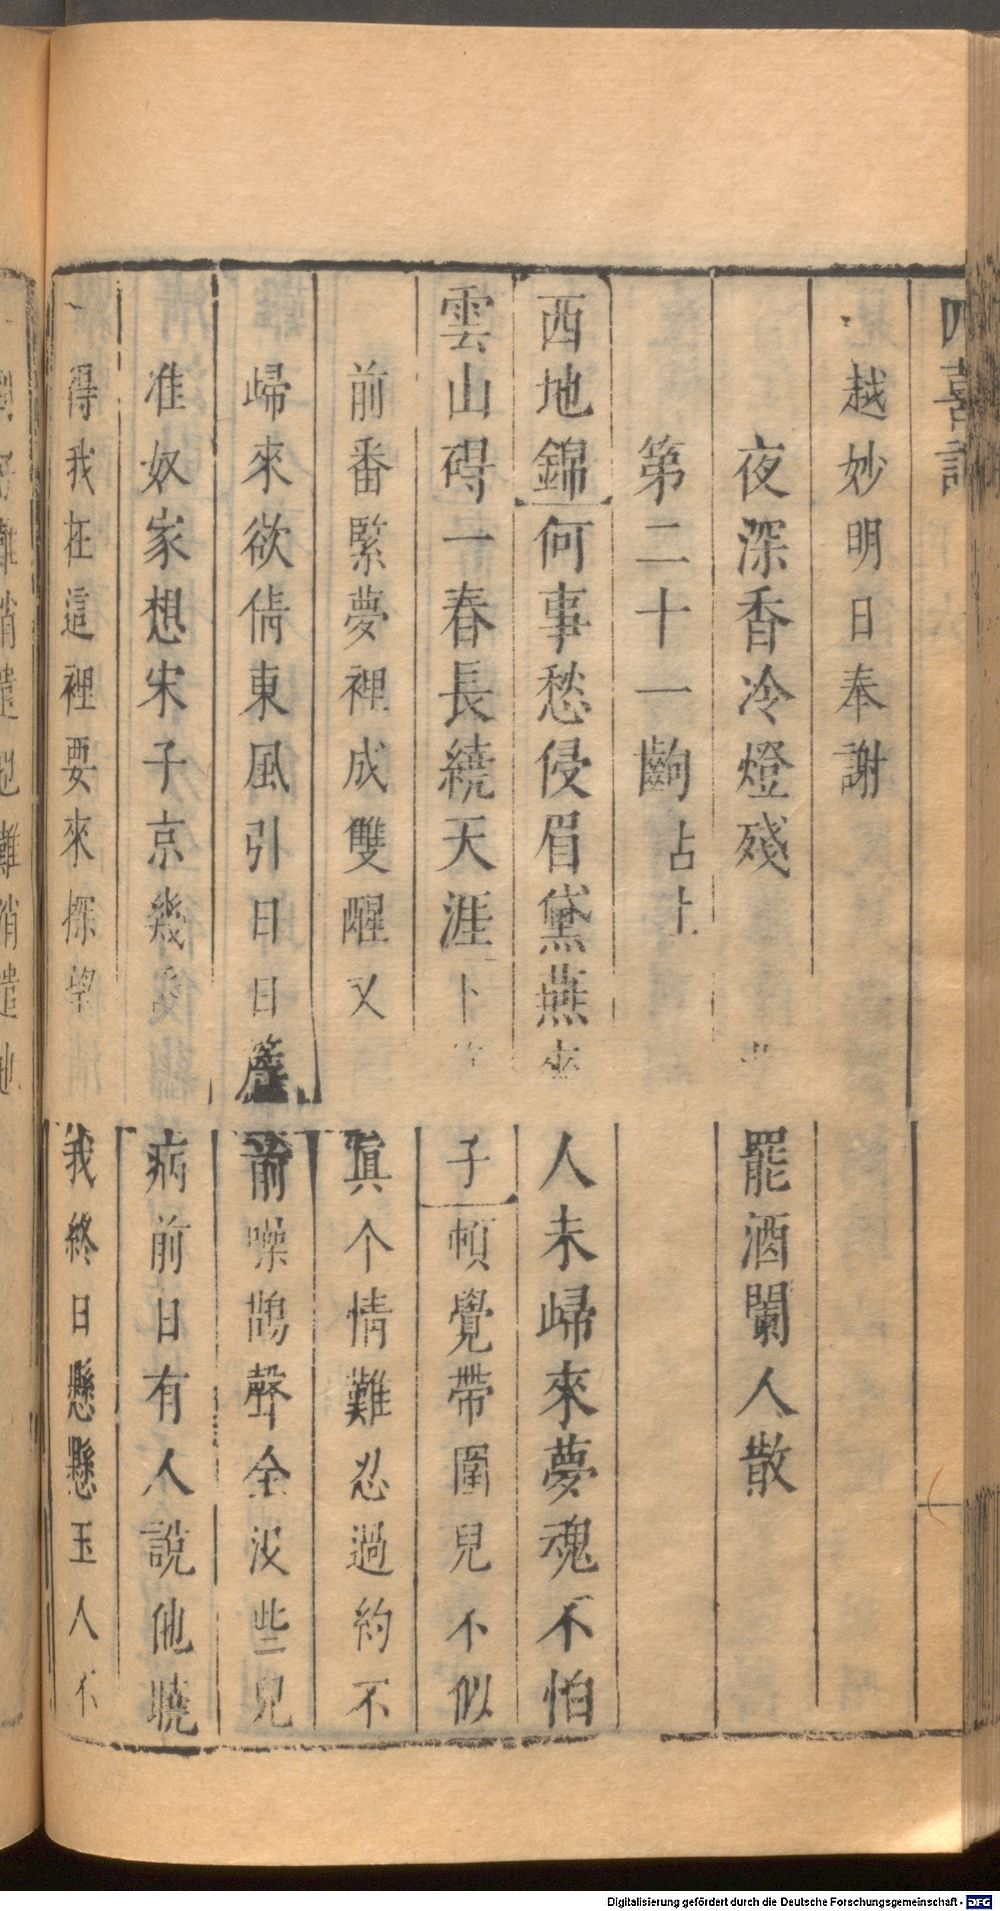 四喜記
越妙明日奉謝
夜深香冷燈殘 罷酒闌人散
第二十一齣 占上
西地錦 何事愁侵眉黛燕來人未歸來夢魂不怕
雲山碍一春長繞天涯 卜 子 頓覺帶圍兒不似
前番緊夢裡成雙醒又 真个情難忍過約不
歸來欲倩東風引日日簷前噪鵲聲全没些兒
准奴家想宋子京幾 病前日有人說他曉
得我在這裡要來探望我終日懸懸玉人不
Digitalisierung gefördert durch die Deutsche Forschungsgemeinschaft - DFG